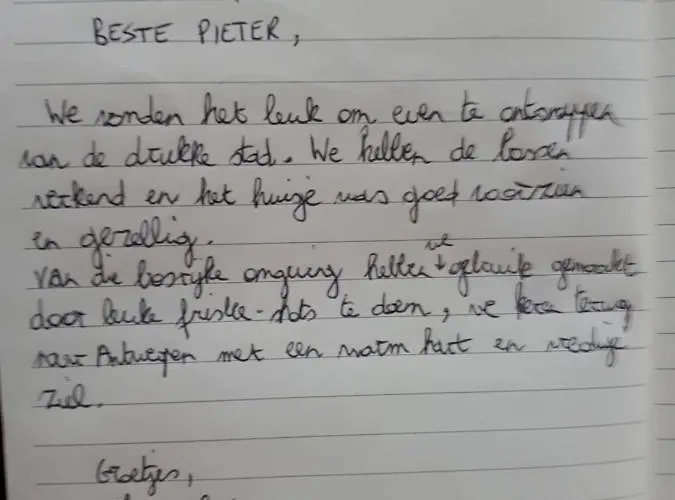 BESTE PIETER,
We vonden het leuk om even te ontsnappen
van de drukke stad. We hebben de bossen
verkend en het huisje was goed voorzien
en gezellig.
van de bosrijke omgeving hebben we gebruik gemaakt
door leuke frisbee-shots te doen, we keren terug
naar Antwerpen met een warm hart en vredige
ziel.
Groetjes,